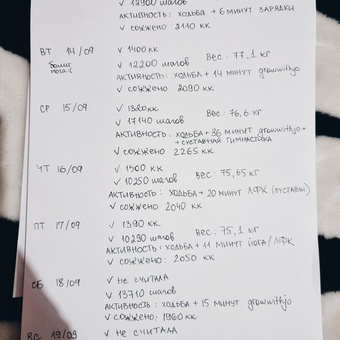 ✓ 12900 шагов
Активность: ходьба + 6 минут зарядки
✓ сожжено 2110 кк
ВТ 14/09 ✓ 1400 кк
✓ 12200 шагов Вес: 77,1 кг
Активность: ходьба + 14 минут growwithjo
✓ сожжено 2090 кк
СР 15/09 ✓ 1320 кк
✓ 17140 шагов Вес: 76,6 кг
Активность: ходьба + 36 минут growwithjo +
+ суставная гимнастика
✓ сожжено 2265 кк
ЧТ 16/09 ✓ 1500 кк
✓ 10250 шагов Вес: 75,65 кг
Активность: ходьба + 20 минут ЛФК (суставы)
✓ сожжено 2040 кк
ПТ 17/09 ✓ 1390 кк.
✓ 10290 шагов Вес: 75,1 кг
Активность: ходьба + 11 минут йога/ЛФК
✓ сожжено: 2050 кк
СБ 18/09 ✓ не считала
✓ 13710 шагов
Активность: ходьба + 15 минут growwithjo
✓ сожжено: 1960 кк
ВС 19/09 ✓ не считала